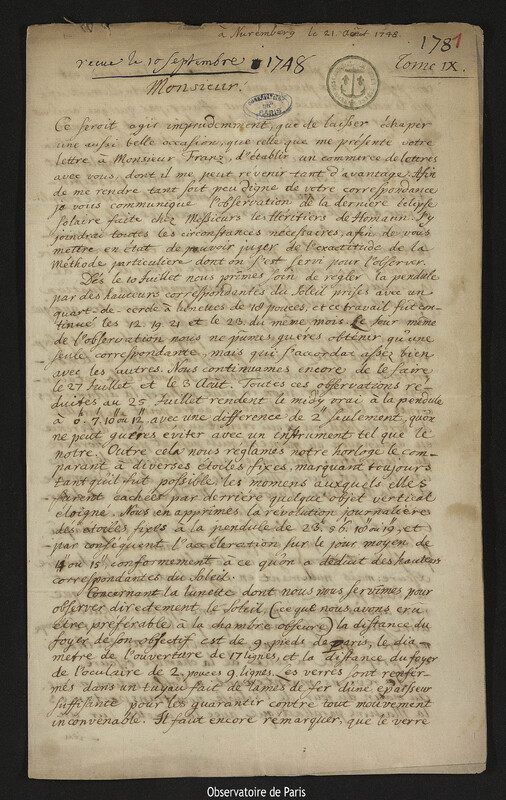 à Nuremberg le 21. Août 1748.
1781
recue le 10 Septembre 1748
Tome IX.
Monsieur.
Ce seroit agir imprudemment, que de laisser échaper
une aussi belle occasion, que celle que me présente votre
lettre à Monsieur Franz, d'établir un commerce de letres
avec vous, dont il me peut revenir tant d'avantage. Afin
de me rendre tant soit peu digne de votre correspondance
je vous communique l'observation de la derniére éclipse
solaire faite chez Messieurs les Héritiers de Homann. J'y
joindrai toutes les circonstances nécessaires, afin de vous
mettre en état, de pouvoir juger de l'exactitude de la
Méthode particuliere dont on s'est servi pour l'observer.
Dés le 10 Juillet nous prîmes soin de regler la pendule
par des hauteurs correspondantes du Soleil prises avec un
quart-de-cercle à lunettes de 18 pouces, et ce travail fut con-
tinué les 12. 19. 21 et le 23. du même mois. Le jour même
de l'observation nous ne pumes guères obtenir, qu'une
seule correspondante, mais qui s'accordat assez bien
avec les autres. Nous continuames encore de le faire
le 27 Juillet et le 3 Août. Toutes ces observations re-
duites au 25 Juillet rendent le midy vrai à la pendule
à 0h 7' 10" ou 12" avec une difference de 2" seulement, qu'on
ne peut guères eviter avec un instrument tel que le
notre. Outre cela nous reglames notre horloge le com-
parant à diverses étoiles fixes, marquant toujours
tant qu'il fut possible, les momens auxquels elles
furent cachées par derriere quelque objet vertical
éloigné. Nous en apprimes, la révolution journaliére
des étoiles fixes à la pendule de 23h 56' 18" ou 19", et
par conséquent l'accéleration sur le jour moyen de
14" ou 15", conformement à ce qu'on a déduit des hauteurs
correspondantes du Soleil.
Concernant la lunette dont nous nous servimes pour
observer directement le Soleil, (ce que nous avons cru
être préférable à la chambre obscure) la distance du
foyer de son objectif est de 9. pieds de Paris, le dia-
metre de l'ouverture de 17 lignes, et la distance du foyer
de l'oculaire de 2. pouces 9. lignes. Les verres sont renfer-
més dans un tuyau fait de lames de fer d'une épaisseur
suffisante pour les guarantir contre tout mouvement
inconvenable. Il faut encore remarquer, que le verre
Observatoire de Paris